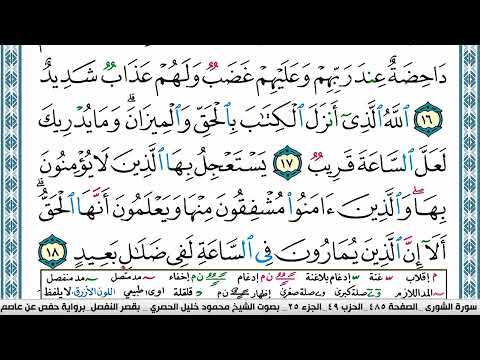 دَاحِضَةٌ عِندَ رَبِّهِمْ وَعَلَيْهِمْ غَضَبٌ وَلَهُمْ عَذَابٌ شَدِيدٌ
١٦ ٱللَّهُ ٱلَّذِىٓ أَنزَلَ ٱلْكِتَٰبَ بِٱلْحَقِّ وَٱلْمِيزَانَ ۗ وَمَا يُدْرِيكَ
لَعَلَّ ٱلسَّاعَةَ قَرِيبٌ ١٧ يَسْتَعْجِلُ بِهَا ٱلَّذِينَ لَا يُؤْمِنُونَ
بِهَا ۖ وَٱلَّذِينَ ءَامَنُوا۟ مُشْفِقُونَ مِنْهَا وَيَعْلَمُونَ أَنَّهَا ٱلْحَقُّ ۗ
أَلَآ إِنَّ ٱلَّذِينَ يُمَارُونَ فِى ٱلسَّاعَةِ لَفِى ضَلَٰلٍۭ بَعِيدٍ ١٨
م إقلاب غنة إدغام بلاغنة ن م إدغام ن م إخفاء مد متصل مد منفصل
المد اللازم صلة كبرى صلة صغرى إظهار ن م قلقلة اوى طبيعي اللون الأزرق لا يلفظ
سورة الشورى _ الصفحة ٤٨٥ _ الحزب ٤٩ _ الجزء ٢٥ _ بصوت الشيخ محمود خليل الحصري _ بقصر المنفصل _ برواية حفص عن عاصم